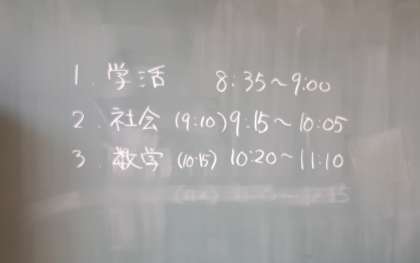 1. 学活 8:35~9:00
2. 社会 (9:10) 9:15~10:05
3. 数学 (10:15) 10:20~11:10